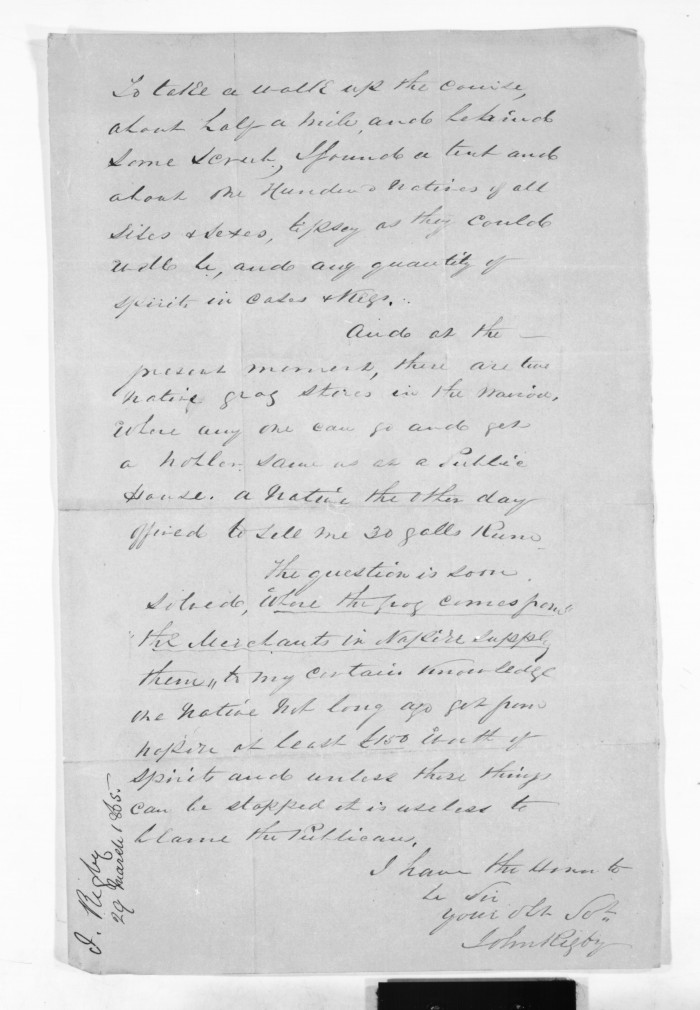 To take a walk up the course,
about half a mile, and behind
some scrub, I found a tent and
about one Hundred Natives of all
sizes & sexes, tipsey as they could
well be, and any quantity of
spirits in cases & Kegs.
And at the —
present moment, there are two
native grog stores in the Wairoa,
Where any one can go and get
a nobler same as at a Public
House. a Native the other day
offired to sell me 20 galls Rum
The question is soon
solved, Where the grog comes from
the Merchants in Napier supply
them,, to my certain Knowledge
one Native Not long ago got from
Napier at least £150 worth of
spirits and unless these things
can be stopped it is useless to
blame the Publicans.
I have the Honor to
be Sir
your obt Svt
John Rigby
J. Rigby
29 March 1865.